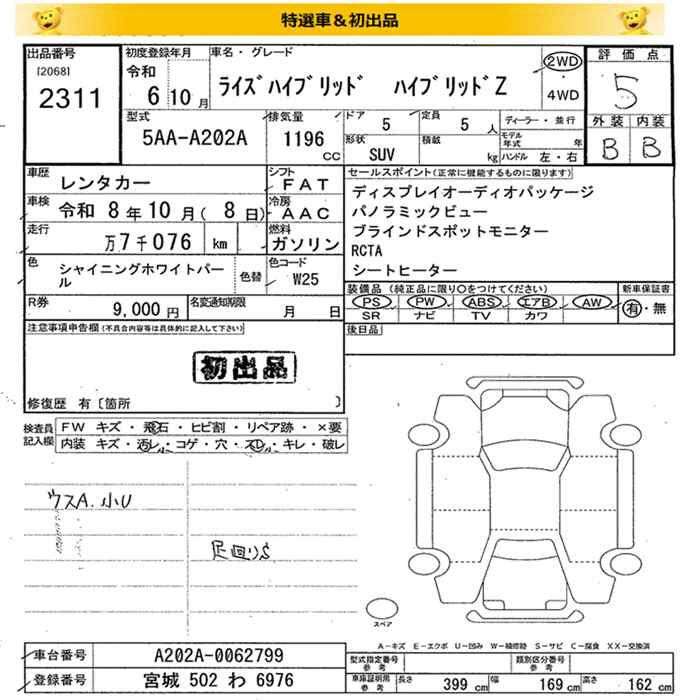 特選車＆初出品
出品番号 [2068] 2311
初度登録年月 令和 6 10 月
車名・グレード ライズハイブリッド ハイブリッドZ
2WD ・ 4WD
評価点 5
外装 内装
B B
型式 5AA-A202A
排気量 1196 CC
ドア 5
定員 5 人
形状 SUV
積載 kg
ディーラー・並行
モデル年式 年
ハンドル 左・右
車歴 レンタカー
シフト FAT
車検 令和 8年10月(8日)
冷房 AAC
走行 万7千076 km
燃料 ガソリン
色 シャイニングホワイトパール 色替
色コード W25
R券 9,000 円
名変通知期限 月 日
セールスポイント(正常に機能するものに限ります)
ディスプレイオーディオパッケージ
パノラミックビュー
ブラインドスポットモニター
RCTA
シートヒーター
装備品 (純正品に限り○をつけてください)
PS PW ABS エアB AW
SR ナビ TV カワ
新車保証書
有・無
後日品
注意事項申告欄(不具合内容等は具体的に記入して下さい)
初出品
修復歴 有〔箇所 〕
検査員記入欄
FW キズ・飛石・ヒビ割・リペア跡・×要
内装 キズ・汚レ・コゲ・穴・スレ・キレ・破レ
ウスA. 小U
足回りS
スペア
A－キズ E－エクボ U－凹み W－補修跡 S－サビ C－腐食 XX－交換済
車台番号 A202A-0062799
登録番号 宮城 502 わ 6976
型式指定番号 参考
類別区分番号 参考
車庫証明用 参考 長さ 399 cm 幅 169 cm 高さ 162 cm